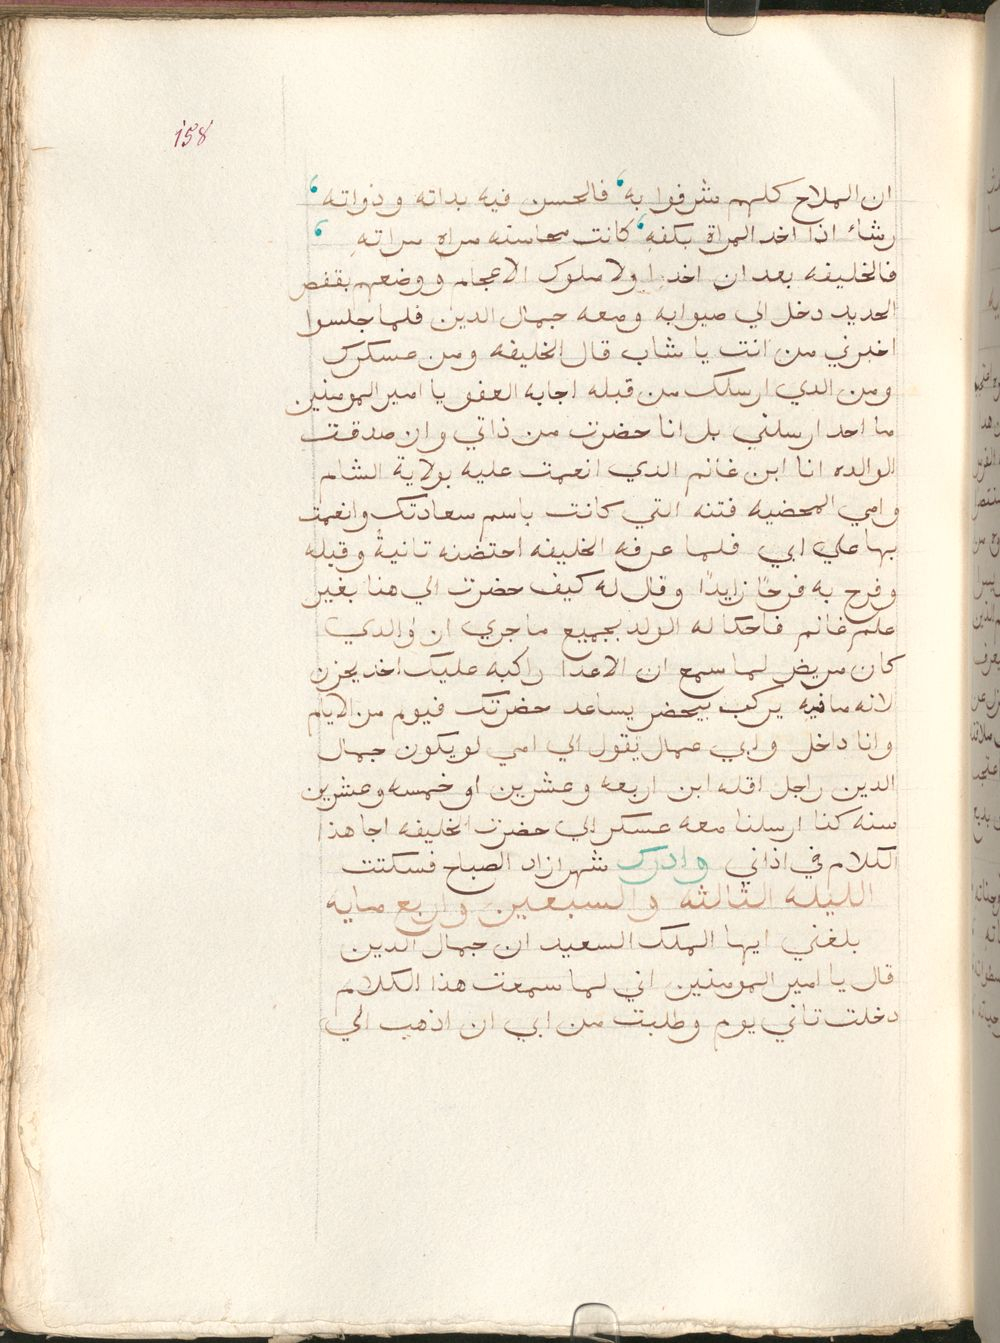 158
ان الملاح كلهم شرفوا به، فالحسن فيه بداته وذواته،
رشاء اذا اخد المراة بكفهِ، كانت محاسنه مراة مراتهِ،
فالخليفه بعد ان اخد اولا ملوك الاعجام ووضعهم بقفص
الحديد دخل الي صيوانه ومعه جمال الدين فلما جلسوا
اخبرني من انت يا شاب قال الخليفه ومن عسكرك
ومن الدي ارسلك من قبله اجابه العفو يا امير المومنين
ما احد ارسلني بل انا حضرت من ذاتي وان صدقت
الوالده انا ابن غانم الدي انعمت عليه بولاية الشام
وامي المحضيه فتنه التي كانت باسم سعادتك وانعمت
بها علي ابي فلما عرفه الخليفه احتضنه تانيةً وقبله
وفرح به فرحًا زايدًا وقال له كيف حضرت الي هنا بغير
علم غانم فاحكا له الولد بجميع ما جري ان والدي
كان مريض لما سمع ان الاعدا راكبه عليك اخد يحزن
لانه ما فيه يركب يحضر يساعد حضرتك فيوم من الايام
وانا داخل وابي عمال يقول الي امي لو يكون جمال
الدين راجل اقله ابن اربعه وعشرين او خمسه وعشرين
سنه كنا ارسلنا معه عسكر الي حضرت الخليفه اجا هذا
الكلام في اذاني وادرك شهرازاد الصباح فسكتت
الليله الثالثه والسبعين واربع مايه
بلغني ايها الملك السعيد ان جمال الدين
قال يا امير المومنين اني لما سمعت هذا الكلام
دخلت تاني يوم وطلبت من ابي ان اذهب الي